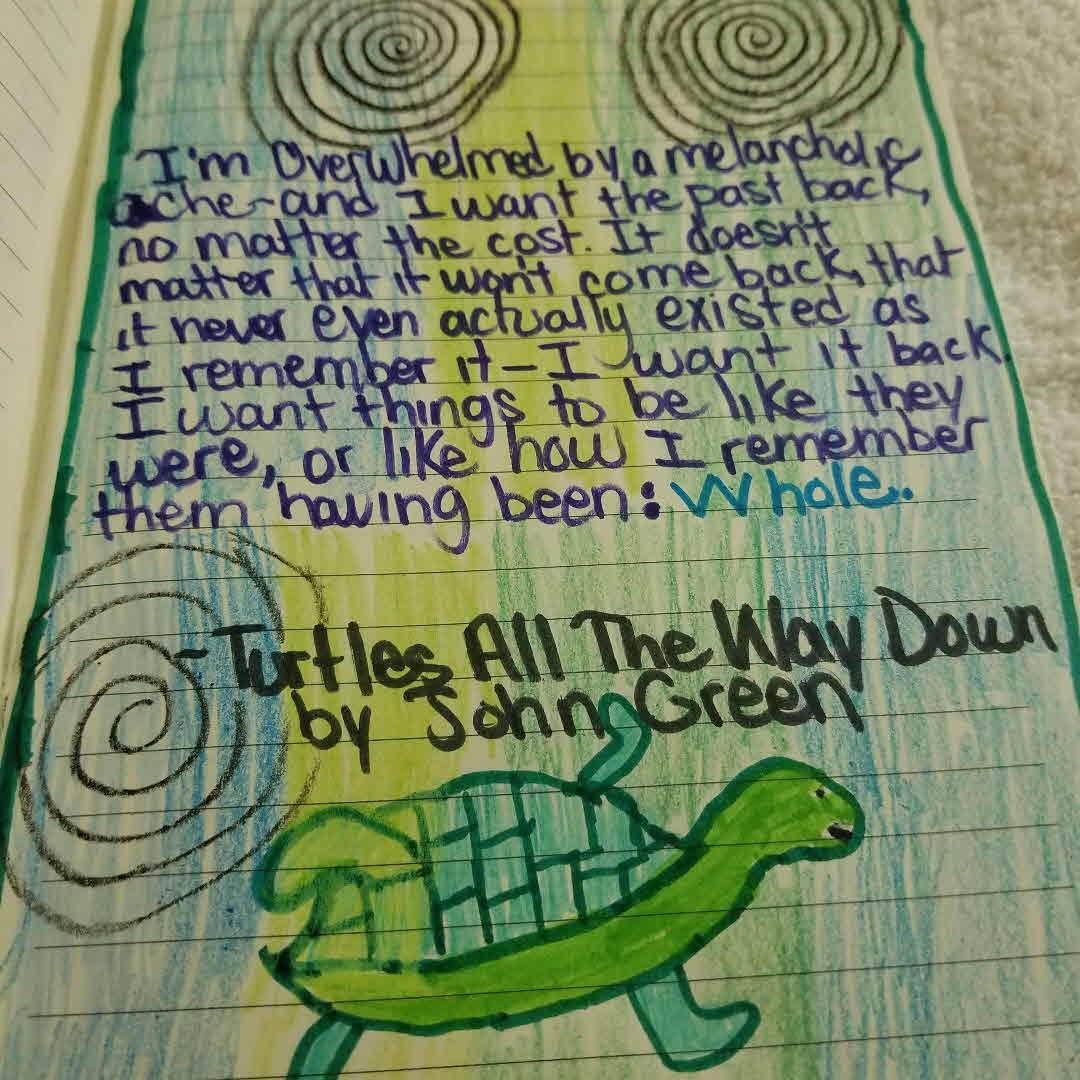 I'm Overwhelmed by a melancholic
ache-and I want the past back,
no matter the cost. It doesn't
matter that it won't come back, that
it never even actually existed as
I remember it - I want it back.
I want things to be like they
were, or like how I remember
them having been: Whole.
- Turtles All The Way Down
by John Green